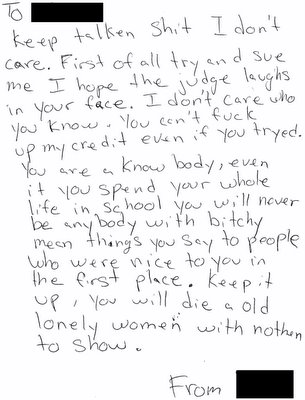 To
keep talken shit I don't
care. First of all try and sue
me I hope the judge laughs
in your face. I don't care who
you know. You can't fuck
up my credit even if you tryed.
You are a know body, even
it you spend your whole
life in school you will never
be anybody with bitchy
mean things you say to people
who were nice to you in
the first place. Keep it
up, you will die a old
lonely women with nothen
to show.
From